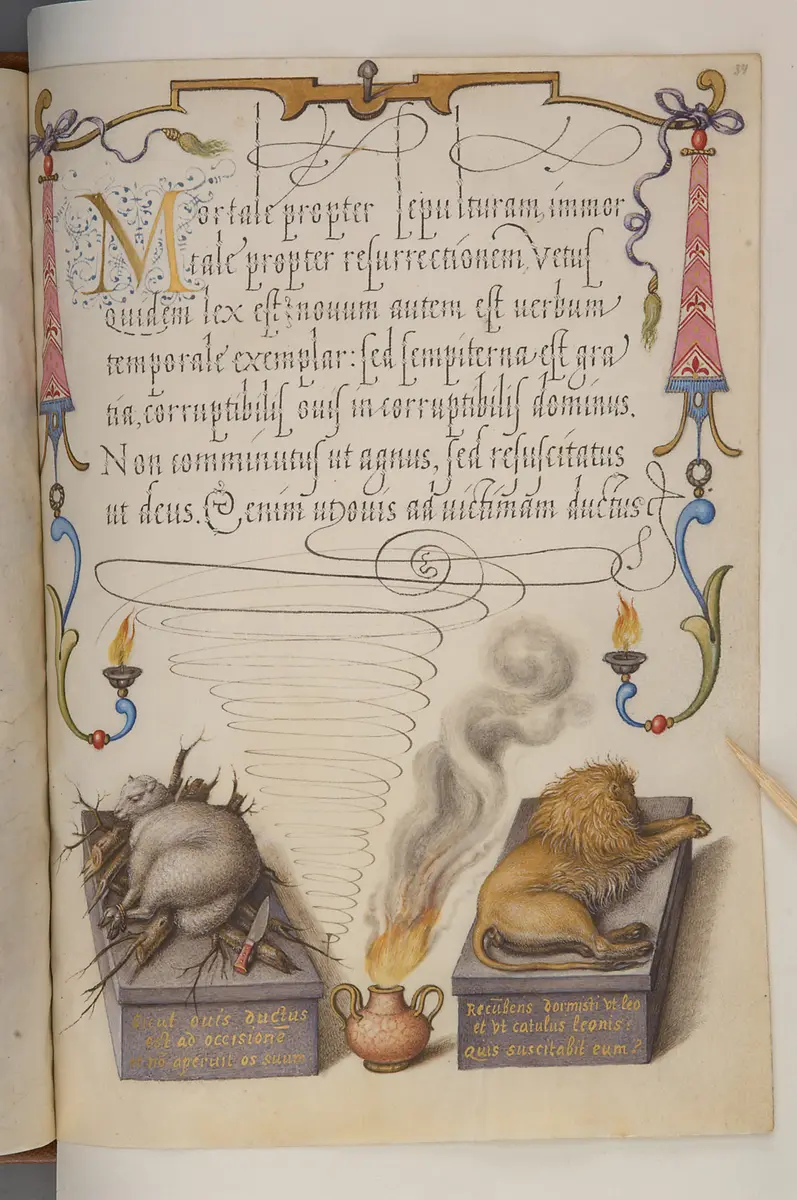 34
Mortale propter sepulturam, immor
tale propter resurrectionem. Vetus
quidem lex est; nouum autem est uerbum
temporale exemplar: sed sempiterna est gra
tia, corruptibilis ouis incorruptibilis dominus.
Non comminutus ut agnus, sed resuscitatus
ut deus. Etenim ut ouis ad uictimam ductus
Sicut ouis ductus
est ad occisionē
et nō aperuit os suum
Recūbens dormisti vt leo
et vt catulus leonis:
quis suscitabit eum?